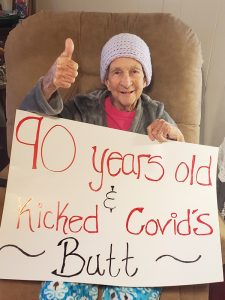 90 years old
&
Kicked Covid's
~ Butt ~